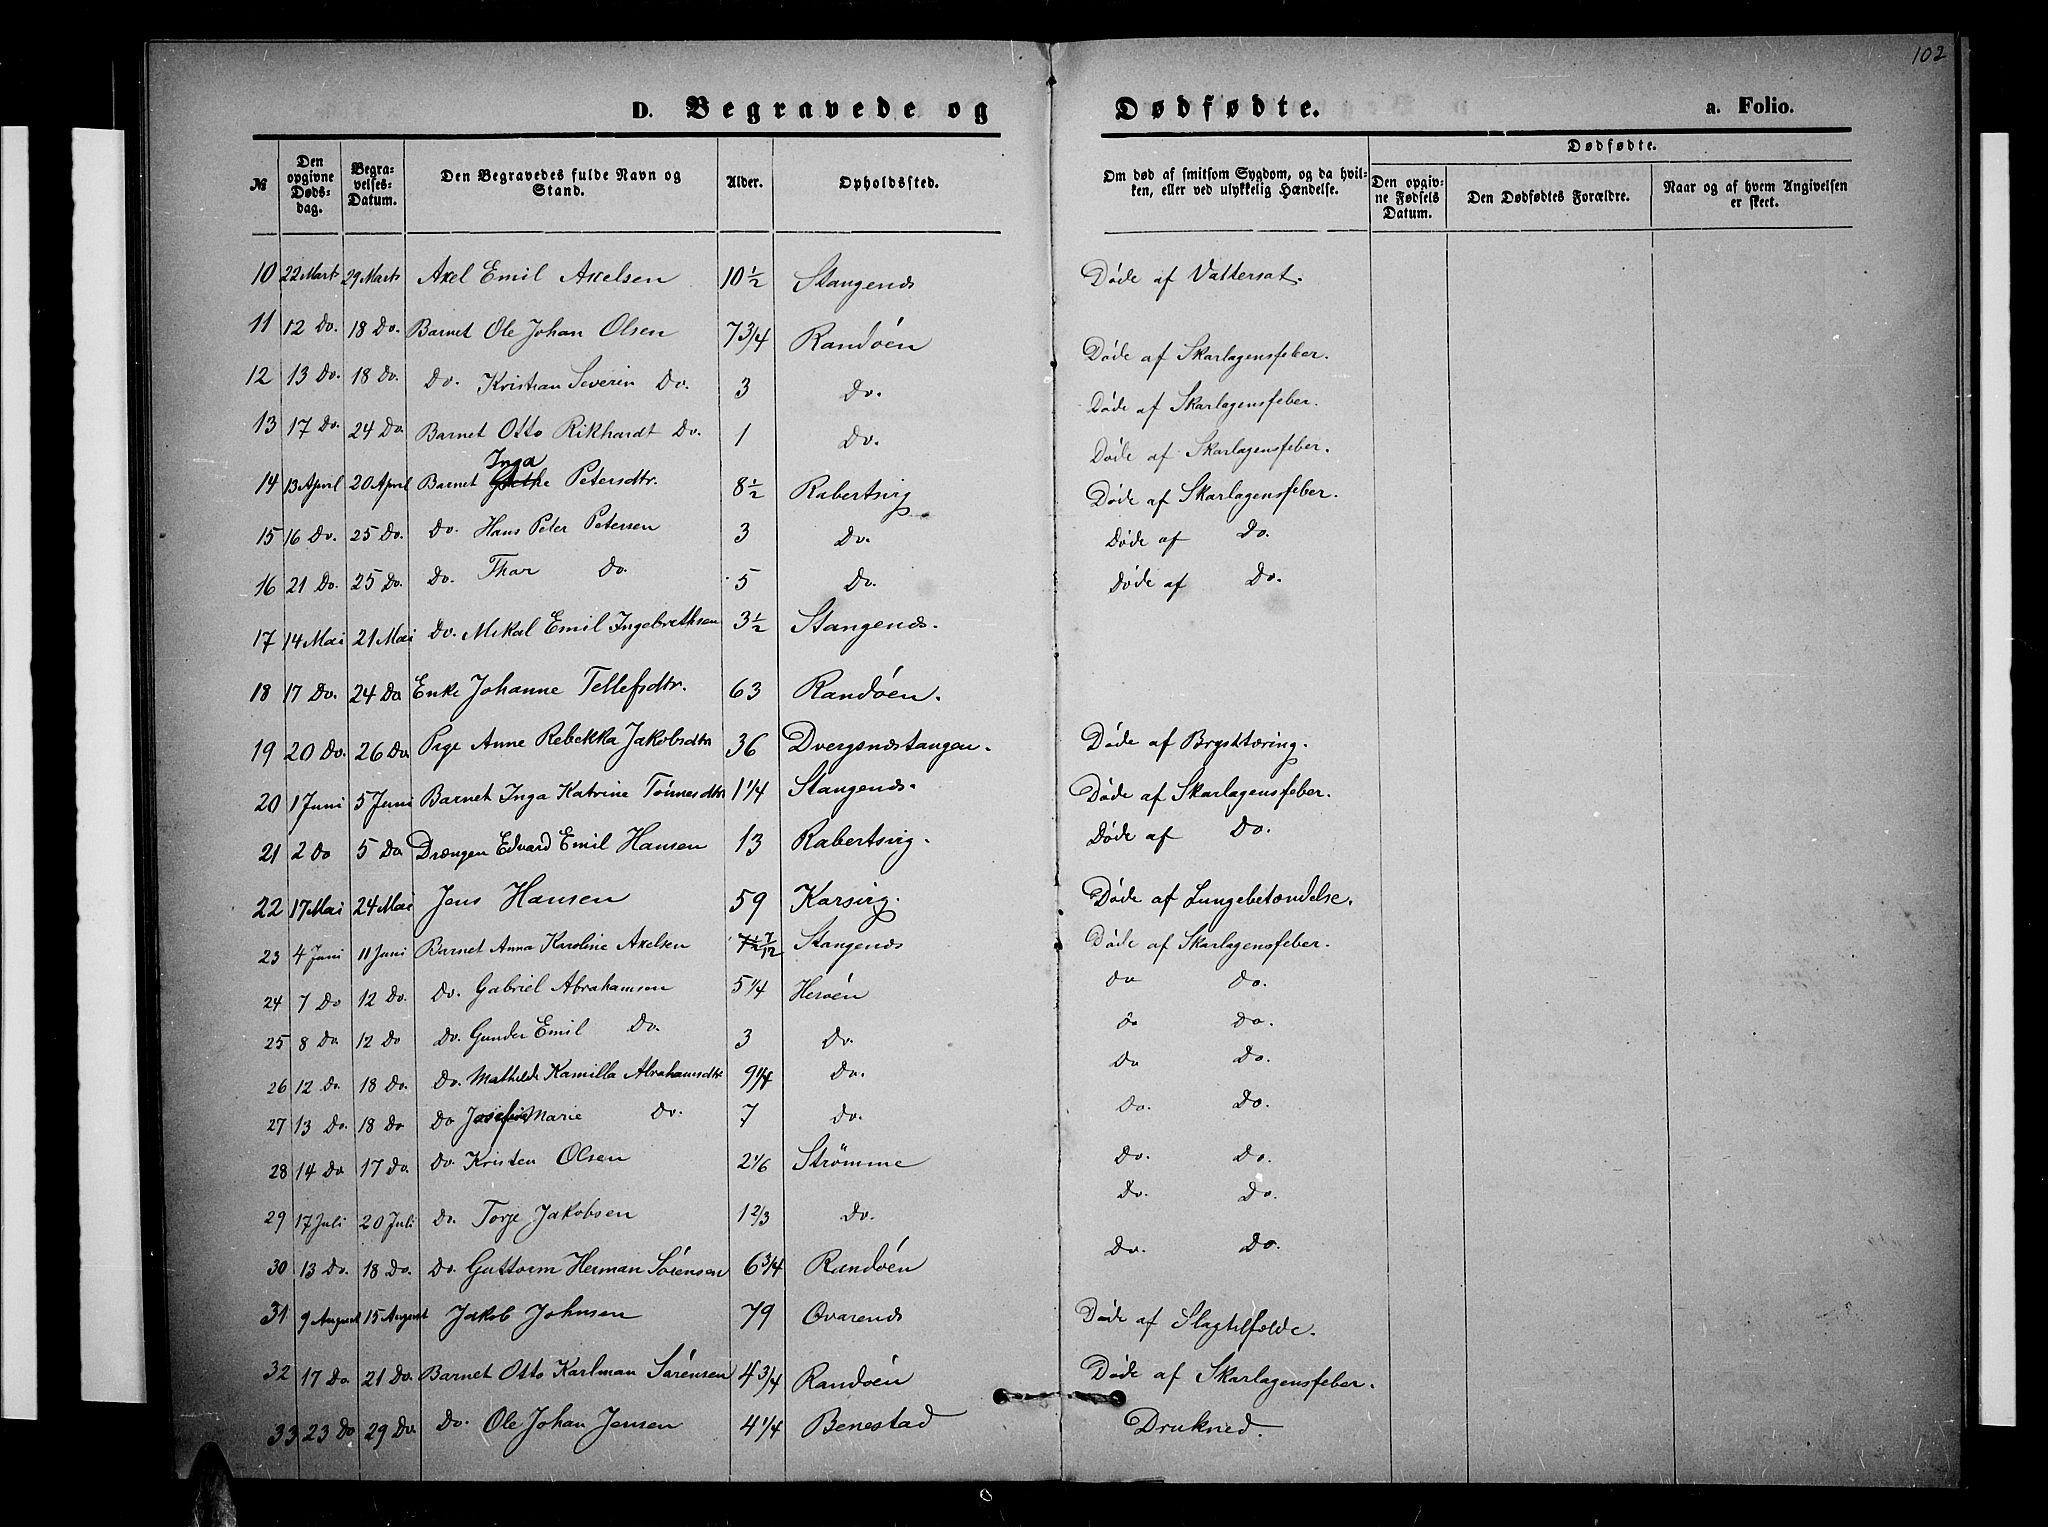 102
D. Begravede og Dødfødte. a. Folio.
№ Den opgivne Dødsdag. Begravelses-Datum. Den Begravedes fulde Navn og Stand. Alder. Opholdssted. Om død af smitsom Sygdom, og da hvilken, eller ved ulykkelig Hændelse. Dødfødte. Den opgivne Fødsels Datum. Den Dødfødtes Forældre. Naar og af hvem Angivelsen er skeet.
10 22 Marts 29 Marts Axel Emil Axelsen 10 1/2 Stangenes Døde af Vattersot.
11 12 Do. 18 Do. Barnet Ole Johan Olsen 7 3/4 Randøen Døde af Skarlagensfeber.
12 13 Do. 18 Do. Do. Kristian Severin Do. 3 Do. Døde af Skarlagensfeber.
13 17 Do. 24 Do. Barnet Otto Rikhardt Do. 1 Do. Døde af Skarlagensfeber.
14 13 April 20 April Barnet Inga Petersdtr. 8 1/2 Rabertsvig Døde af Skarlagensfeber.
15 16 Do. 25 Do. Do. Hans Peter Petersen 3 Do. Døde af Do.
16 21 Do. 25 Do. Do. Thor Do. 5 Do. Døde af Do.
17 14 Mai 21 Mai Do. Mikal Emil Ingebrethsen 3 1/2 Stangenes.
18 17 Do. 24 Do Enke Johanne Tellefsdtr. 63 Randøen.
19 20 Do. 26 Do. Pige Anne Rebekka Jakobsdtr 36 Dvergsnestangen. Døde af Brysttæring.
20 1 Juni 5 Juni Barnet Inga Katrine Tønnesdtr 1 1/4 Stangenes. Døde af Skarlagensfeber.
21 2 Do 5 Do Drængen Edvard Emil Hansen 13 Rabertsvig. Døde af Do.
22 17 Mai 24 Mai Jens Hansen 59 Korsvig. Døde af Lungebetændelse.
23 4 Juni 11 Juni Barnet Anna Karoline Axelsen 7/12 Stangenes Døde af Skarlagensfeber.
24 7 Do 12 Do. Do. Gabriel Abrahamsen 5 1/4 Herøen Do Do.
25 8 Do. 12 Do Do. Gunder Emil Do. 3 Do. Do Do.
26 12 Do. 18 Do. Do. Mathilde Kamilla Abrahamsdtr 9 1/4 Do. Do Do.
27 13 Do. 18 Do Do Josefine Marie Do. 7 Do. Do. Do.
28 14 Do. 17 Do. Do. Kristen Olsen 2 1/6 Strømme Do. Do.
29 17 Juli 20 Juli Do. Torje Jakobsen 1 2/3 Do. Do. Do.
30 13 Do. 18 Do. Do. Guttorm Herman Sørensen 6 3/4 Randøen Do. Do.
31 9 August 15 August Jakob Johnsen 79 Ovarenes Døde af Slagtilfælde.
32 17 Do. 21 Do. Barnet Otto Karlman Sørensen 4 3/4 Randøen Døde af Skarlagensfeber.
33 23 Do 29 Do. Do. Ole Johan Jensen 4 1/4 Benestad Druknet.